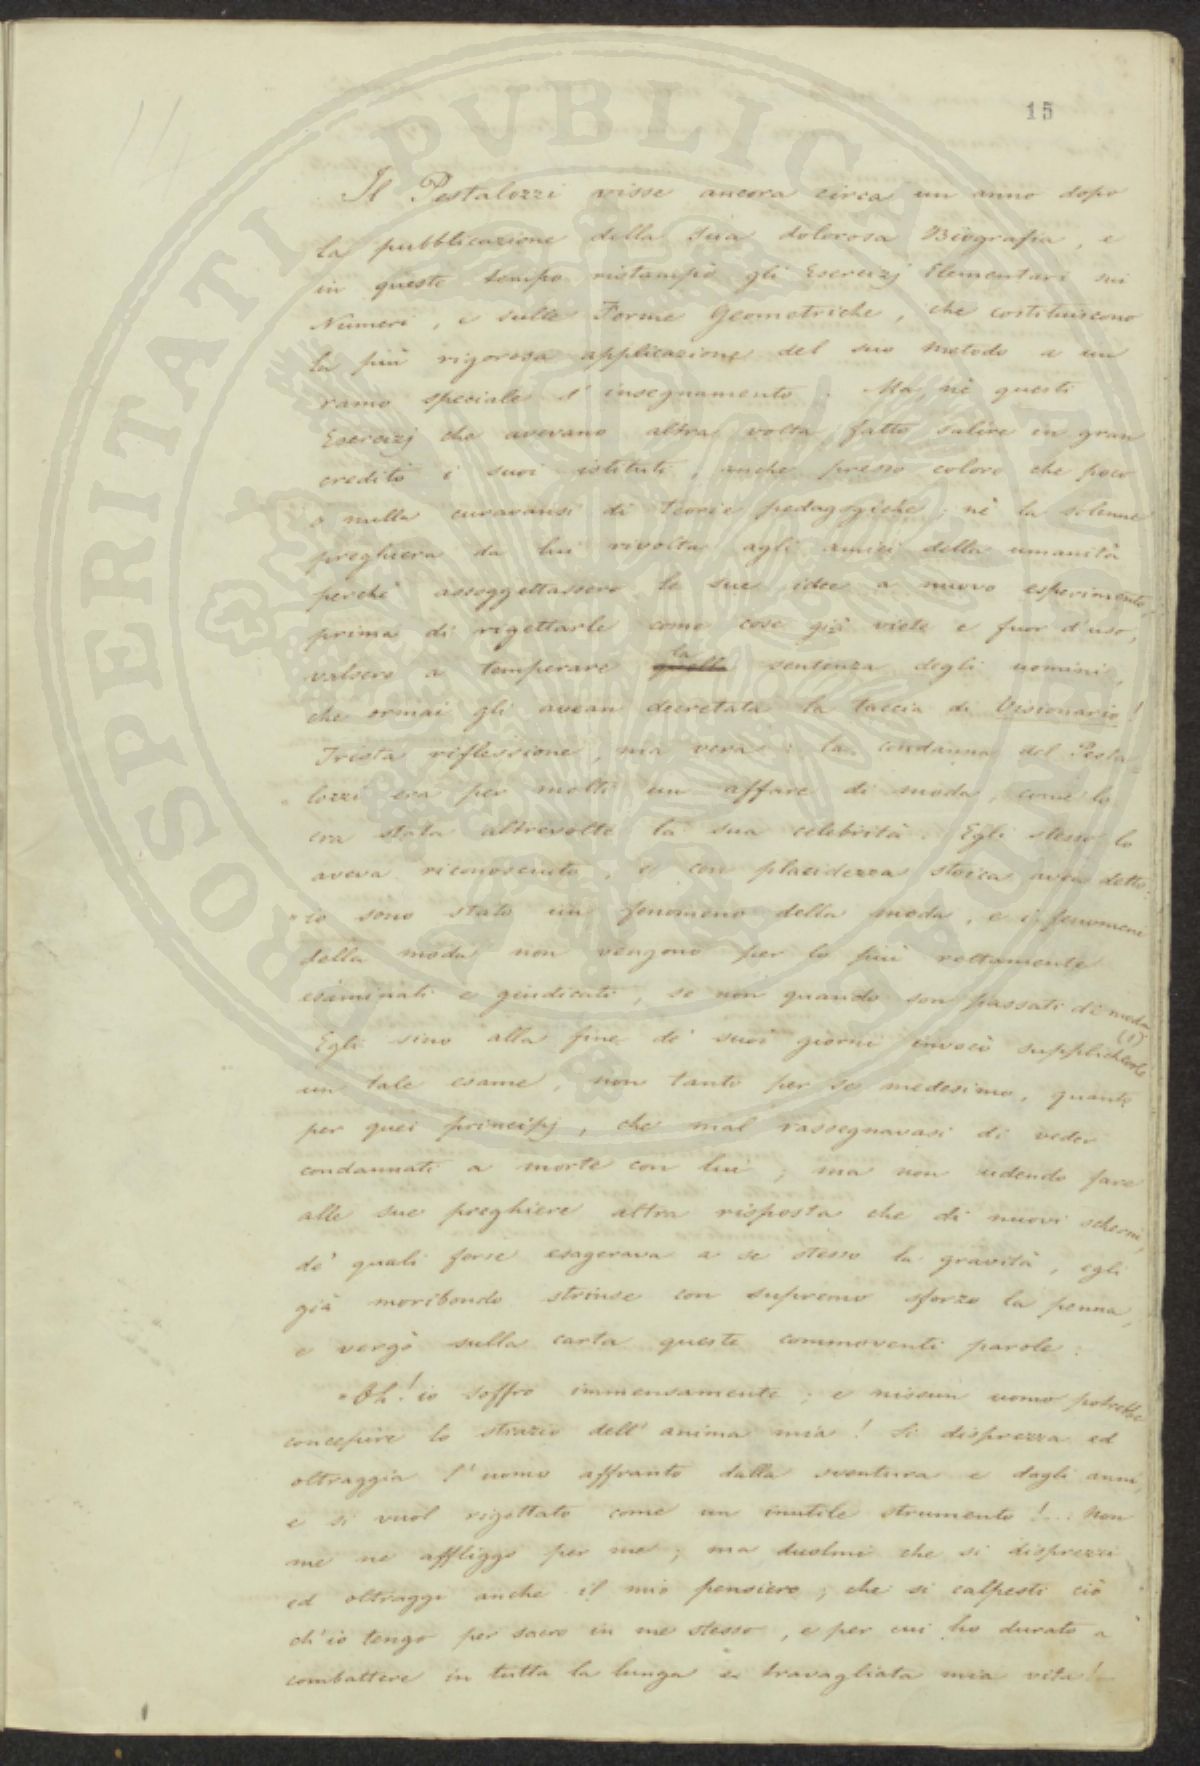 15
Il Pestalozzi visse ancora circa un anno dopo
la pubblicazione della sua dolorosa Biografia, e
in questo tempo ristampò gli Esercizj Elementari sui
Numeri, e sulle Forme Geometriche, che costituiscono
la più rigorosa applicazione del suo metodo a un
ramo speciale d'insegnamento. Ma, nè questi
Esercizj che avevano altra volta fatto salire in gran
credito i suoi istituti, anche presso coloro che poco
o nulla curavansi di teorie pedagogiche; nè la solenne
preghiera da lui rivolta agli amici della umanità
perchè assoggettassero le sue idee a nuovo esperimento,
prima di rigettarle come cose già viete e fuor d'uso,
valsero a temperare quella la sentenza degli uomini,
che ormai gli avean decretata la taccia di Visionario!
Trista riflessione, ma vera: la condanna del Pesta-
lozzi era per molti un affare di moda, come lo
era stata altrevolte la sua celebrità. Egli stesso lo
aveva riconosciuto, e con placidezza stoica avea detto:
"io sono stato un fenomeno della moda, e i fenomeni
della moda non vengono per lo più rettamente
esaminati e giudicati, se non quando son passati di moda
(1)
Egli sino alla fine de' suoi giorni invocò supplichevole
un tale esame, non tanto per se medesimo, quanto
per quei principj, che mal rassegnavasi di veder
condannati a morte con lui; ma non udendo fare
alle sue preghiere altra risposta che di nuovi scherni,
de' quali forse esagerava a se stesso la gravità, egli
già moribondo strinse con supremo sforzo la penna,
e vergò sulla carta queste commoventi parole:
"Oh! io soffro immensamente; e nissun uomo potrebbe
concepire lo strazio dell'anima mia! Si disprezza ed
oltraggia l'uomo affranto dalla sventura e dagli anni,
e si vuol rigettato come un inutile strumento!... Non
me ne affliggo per me; ma duolmi che si disprezzi
ed oltraggi anche il mio pensiero; che si calpesti ciò
ch'io tengo per sacro in me stesso, e per cui ho durato a
combattere in tutta la lunga e travagliata mia vita!
PROSPERITATI PVBLICAE AVGENDAE